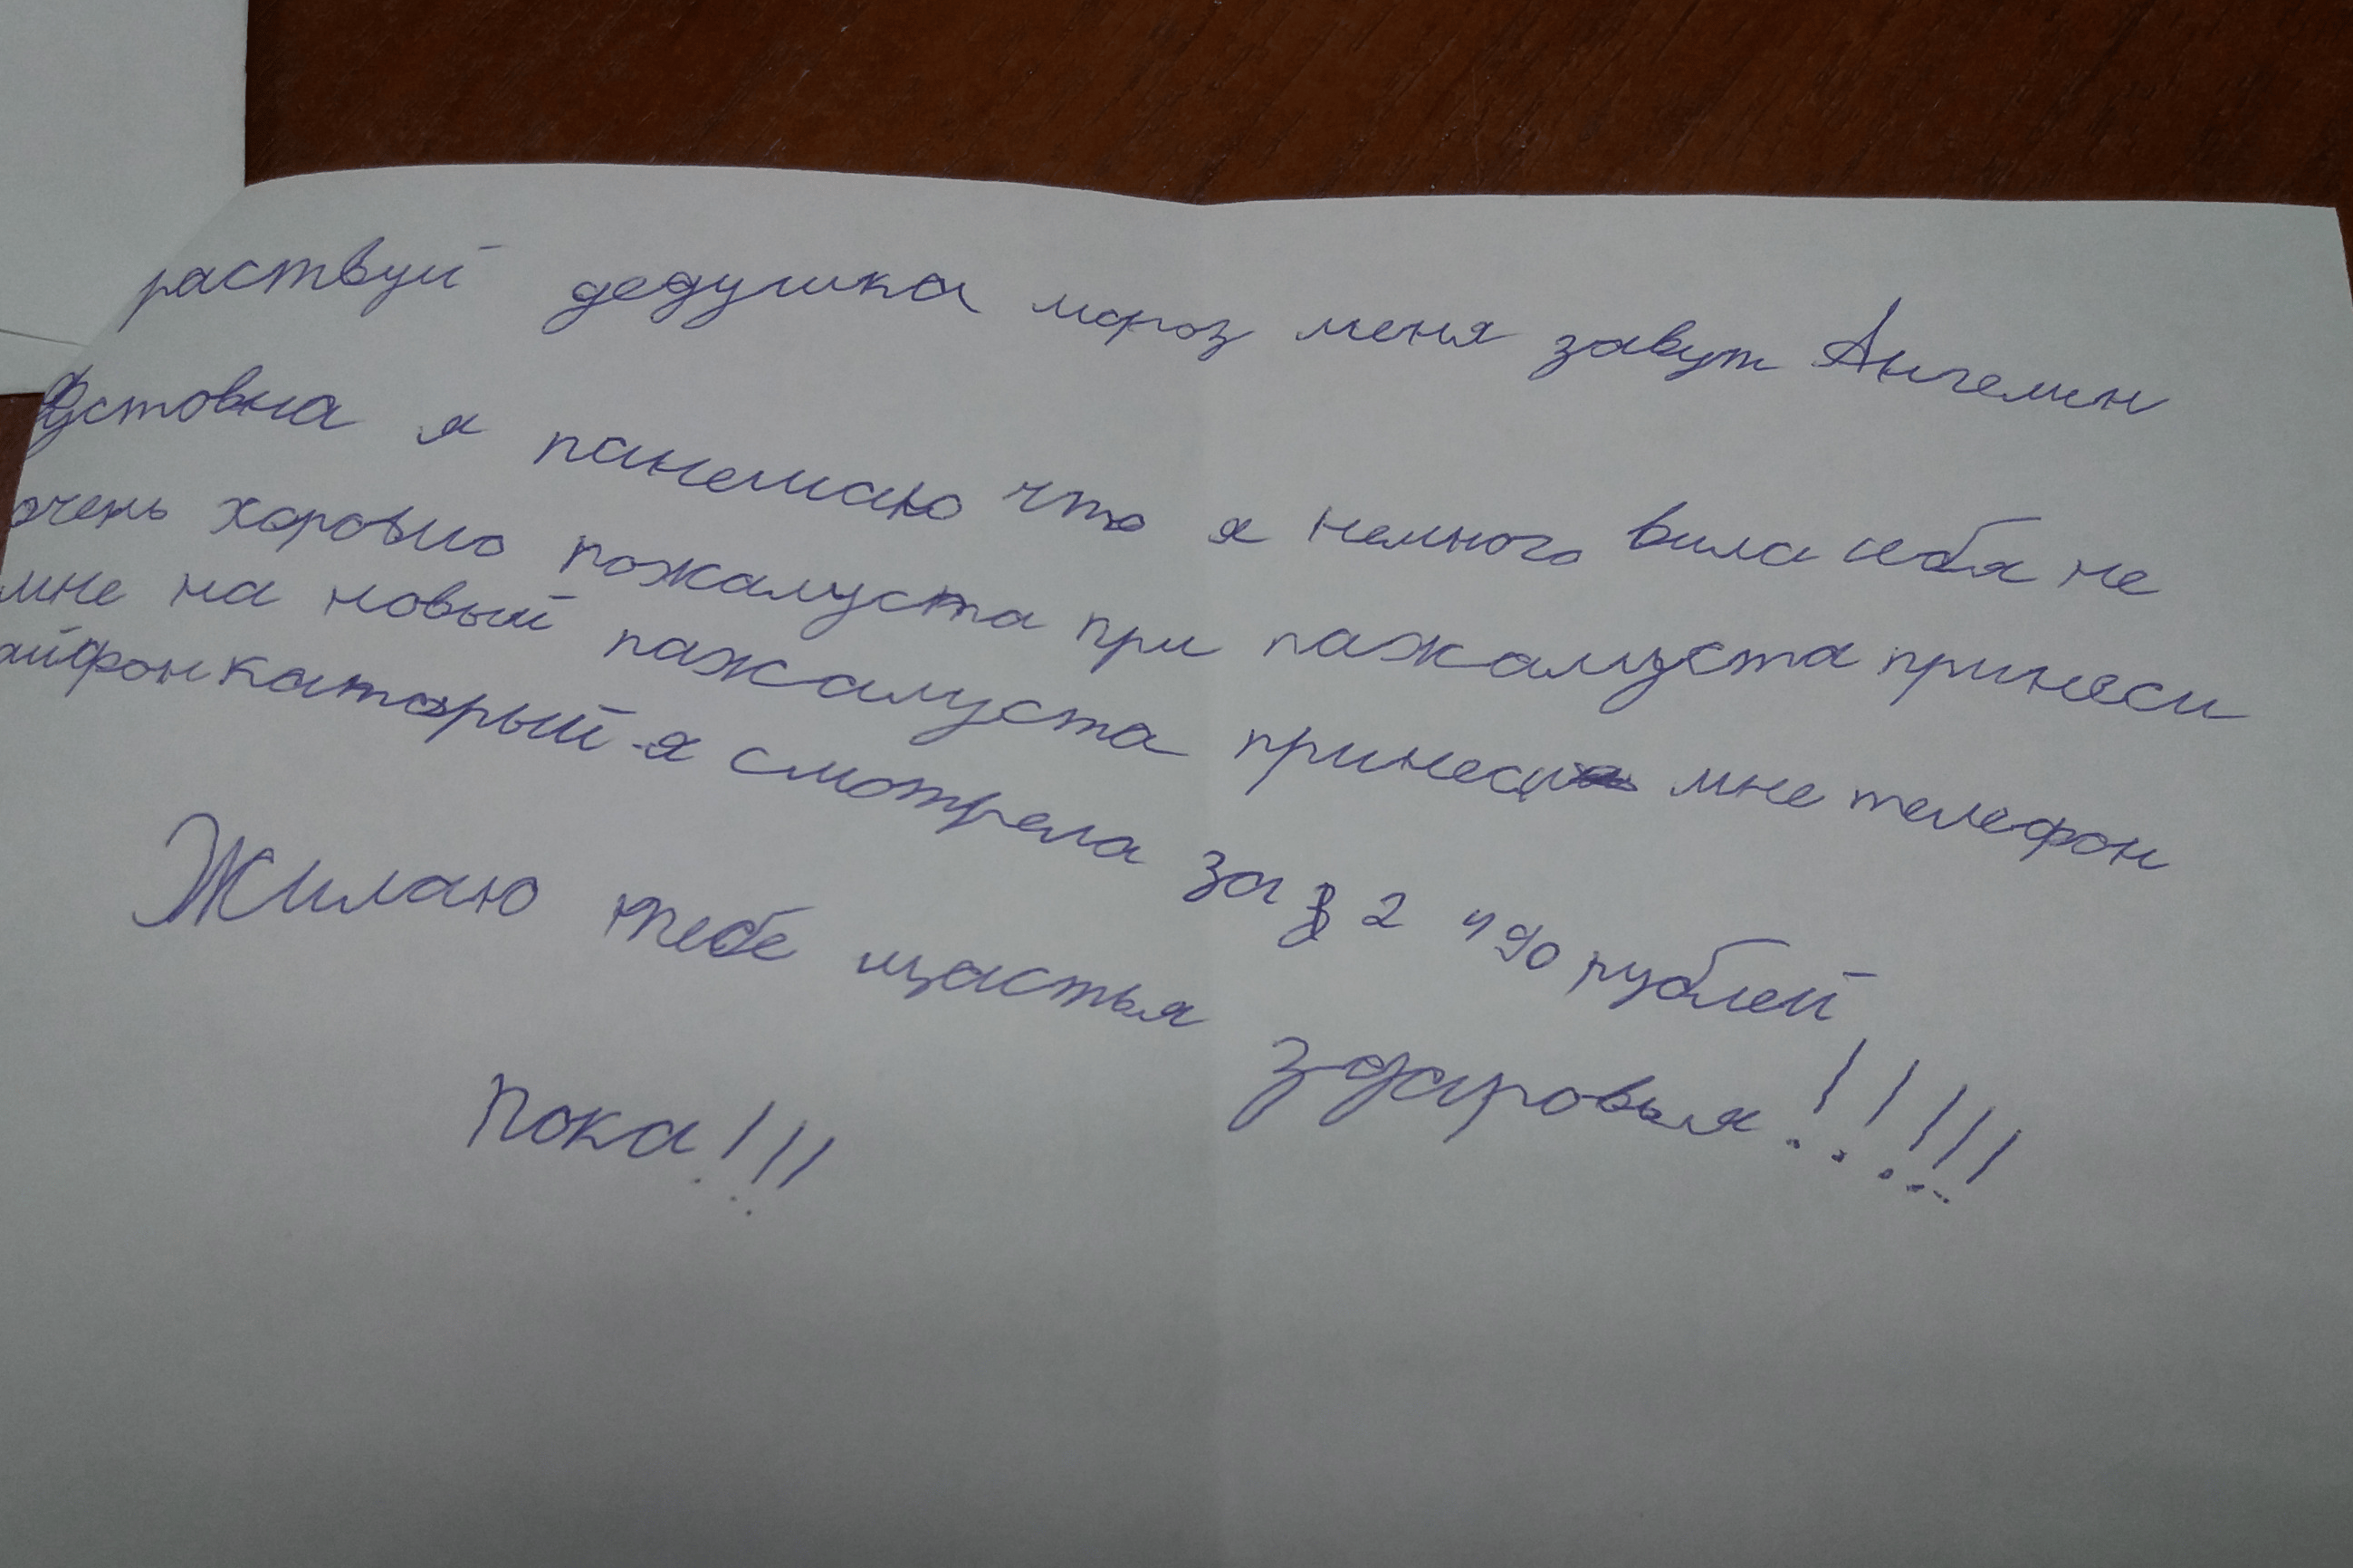 раствуй дедушка мороз меня завут Ангелин
Устовна я панемаю что я немного вила себя не
очень хорошо пожалуста при пажалуста принеси
мне на новый пажалуста принеси мне телефон
айфон каторый я смотрела за 2 490 рублей
Жилаю тебе щастья здаровья!!!!!
пока!!!